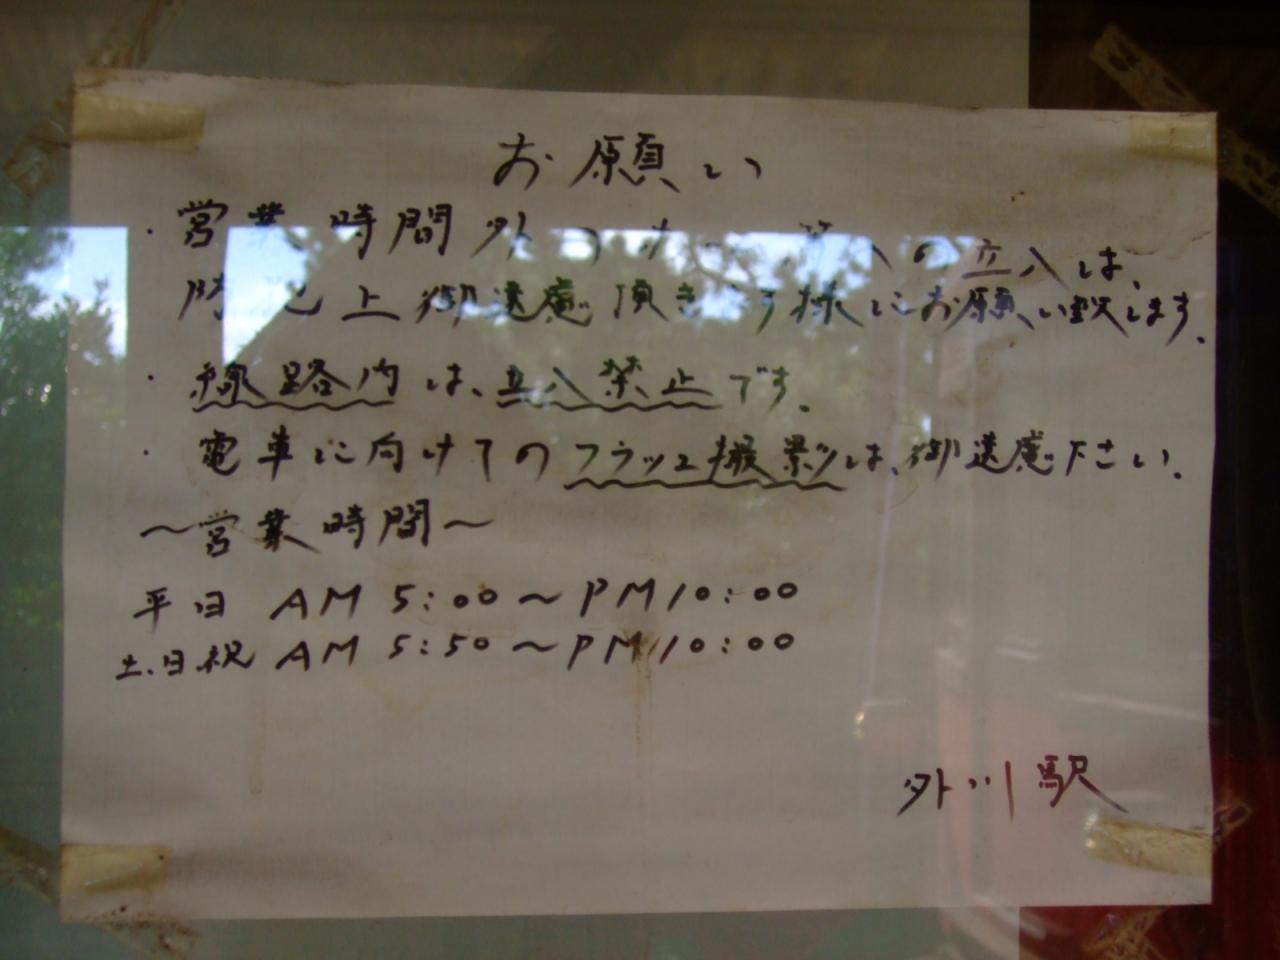 お願い
・営業時間外の立入は、
防犯上御遠慮頂きます様にお願い致します。
・線路内は、立入禁止です。
・電車に向けてのフラッシュ撮影は、御遠慮下さい。
～営業時間～
平日 AM 5:00～PM10:00
土.日祝 AM 5:50～PM10:00
外川駅